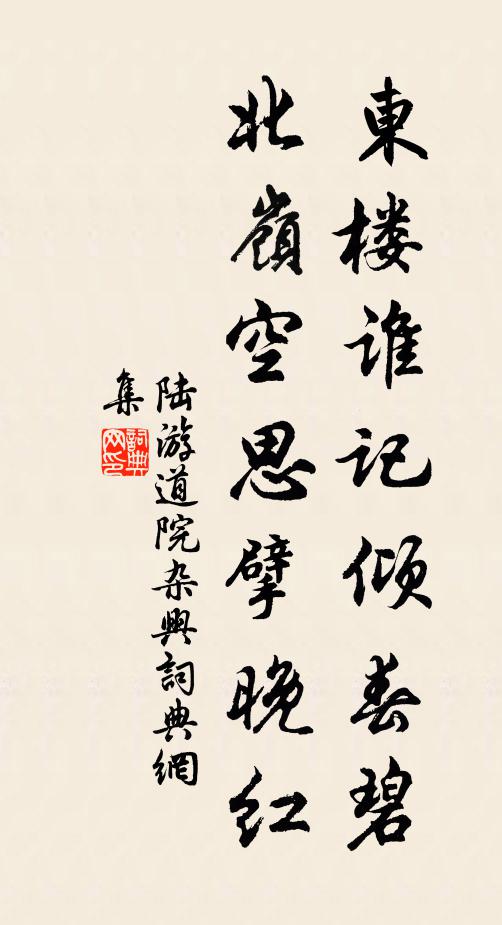 東楼谁记倾春碧
北嶺空思擘晚红
陆游道院杂興詞典網
集
詞典
网印